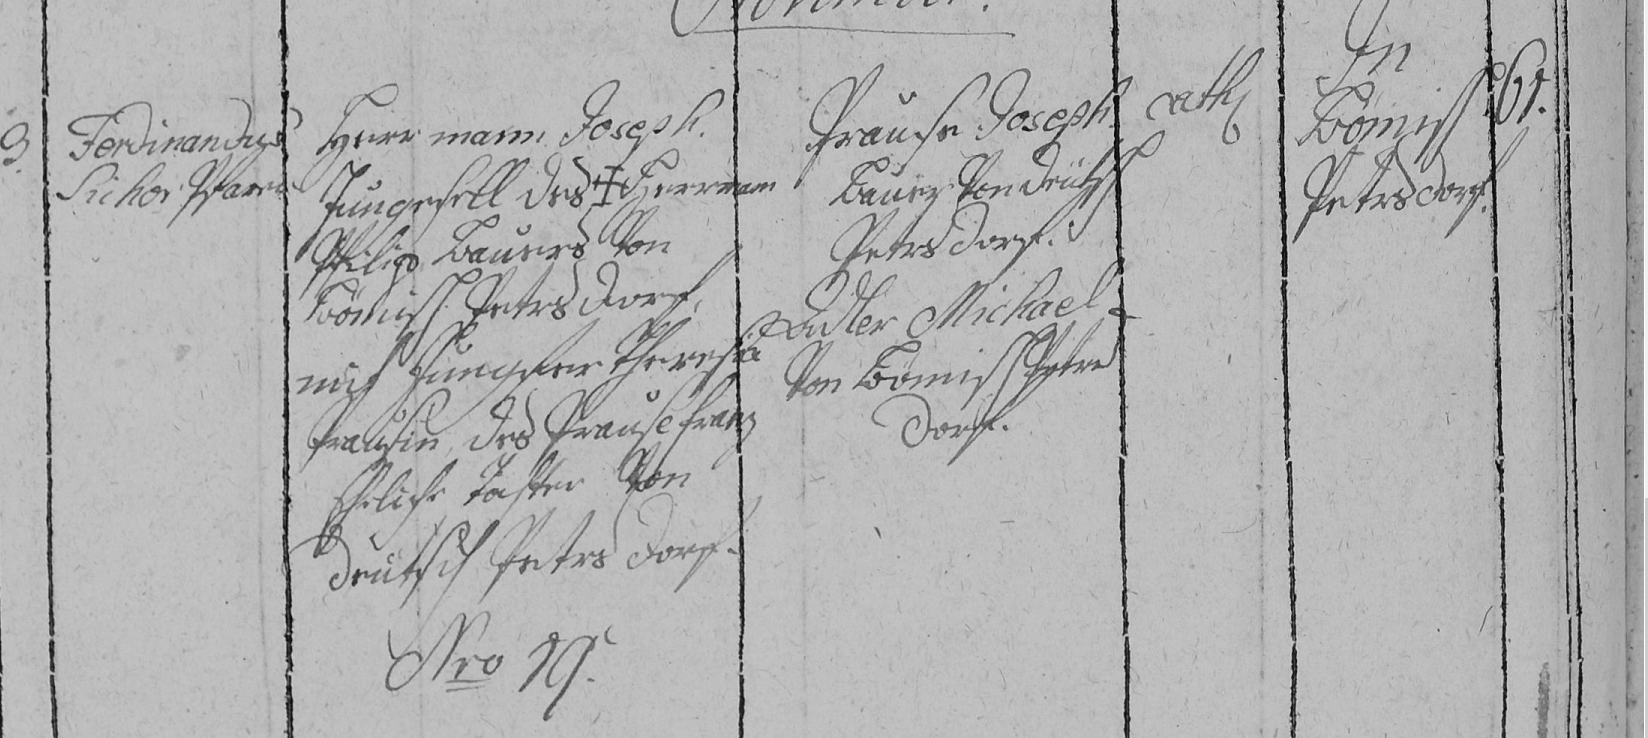 November.
3. Ferdinandus
Sichor Pfarer
Herrmann Joseph.
Jungesell des † Herrman
Philip Bauers Von
Bömisch Petrsdorf,
mit Jungfer Theresia
Prausin, des Prause Franz
Ehelicher Tochter Von
Deutsch Petrsdorf.
Nro 19.
Prause Joseph
Bauer Von Deutsch
Petrsdorf.
Adler Michael
Von Bömisch Petrs
Dorf.
cath
In
Bömisch
Petrsdorf.
61.